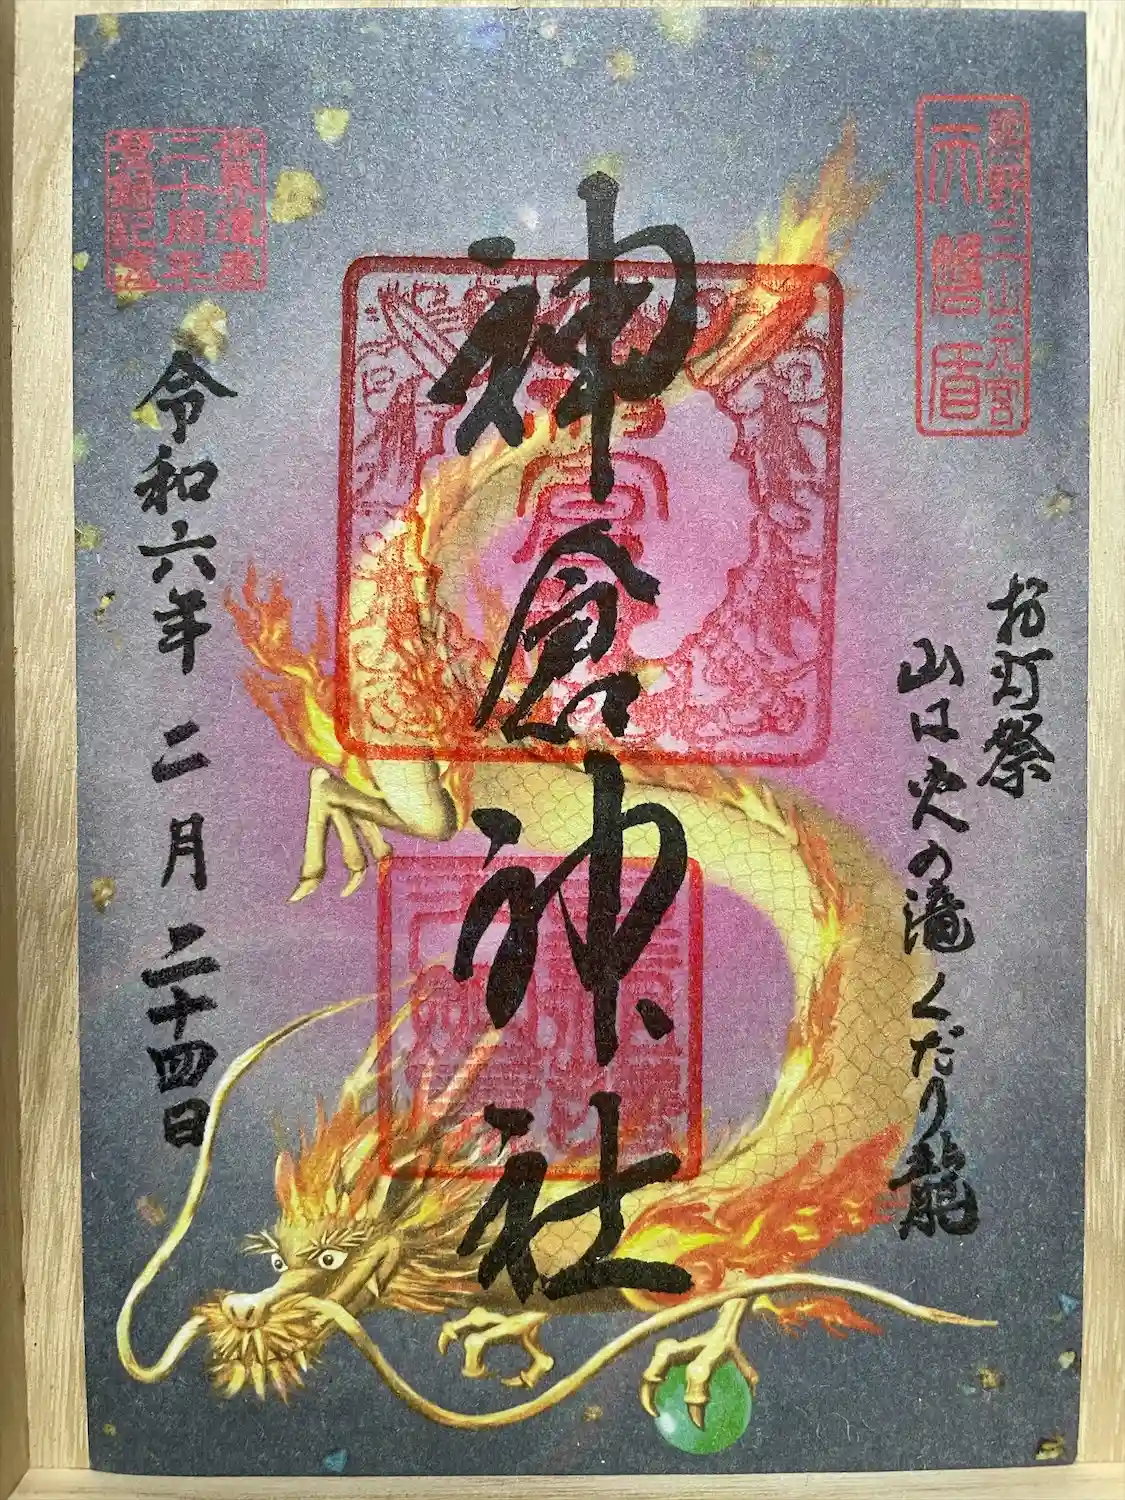 熊野三山元宮
天磐盾
お灯祭
山は火の滝くだり龍
神倉神社
世界遺産
二十周年
登録記念
令和六年 二月 二十四日